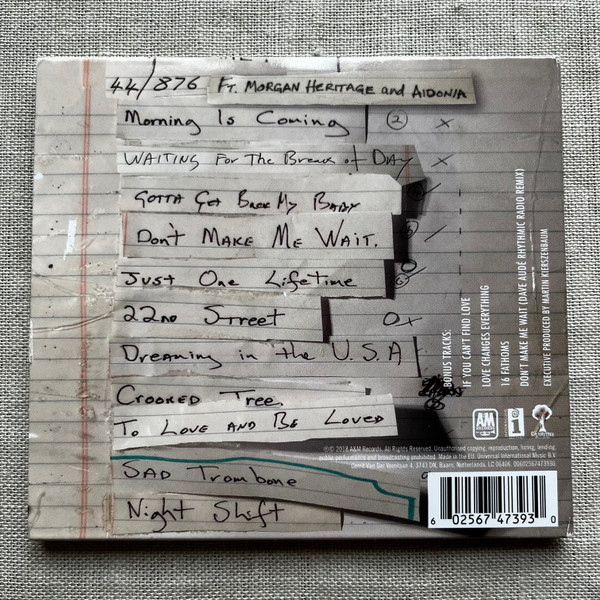 44/876 FT. MORGAN HERITAGE and AIDONIA
Morning Is Coming 2 x
WAITING For The Break of DAY x
GOTTA Get Back My BABY
Don't MAKE ME WAIT.
Just One Lifetime
22nd Street Ox
Dreaming in the U.S.A
CROOKED Tree.
To LOVE AND BE LOVED
SAD Trombone
Night Shift
BONUS TRACKS:
IF YOU CAN'T FIND LOVE
LOVE CHANGES EVERYTHING
16 FATHOMS
DON'T MAKE ME WAIT (DAVE AUDÉ RHYTHMIC RADIO REMIX)
EXECUTIVE PRODUCED BY MARTIN KIERSZENBAUM
AM i
℗© 2018 A&M Records. All Rights Reserved. Unauthorised copying, reproduction, hiring, lending,
public performance and broadcasting prohibited. Made in the EU. Universal International Music B.V.
Gerrit Van Der Veenlaan 4, 3743 DN, Baarn, Netherlands, LC 06406. 00602567473930.
6 02567 47393 0